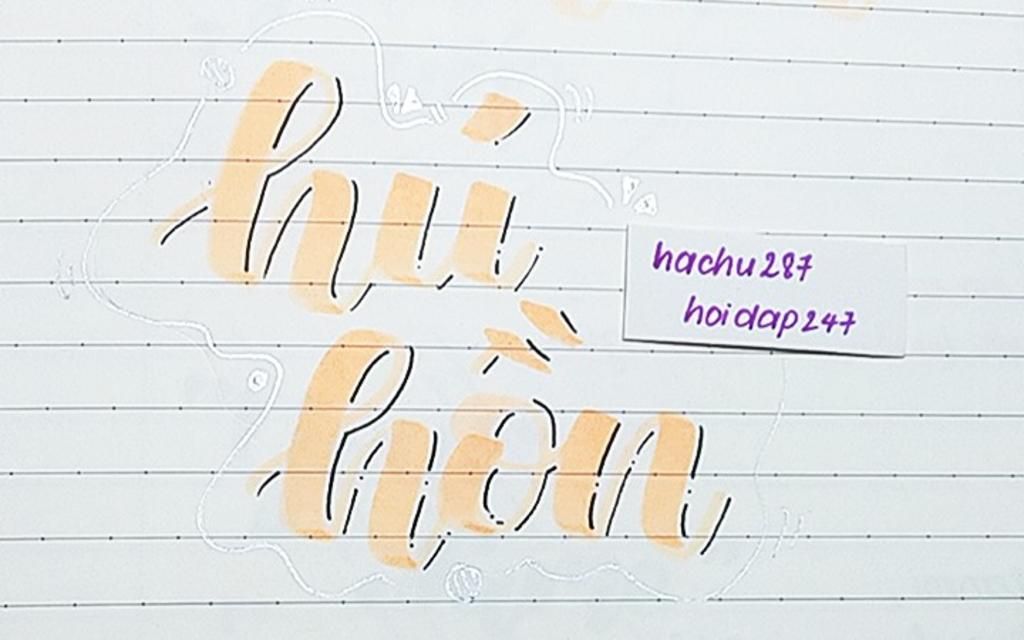 hú
hồn
hachu287
hoidap247